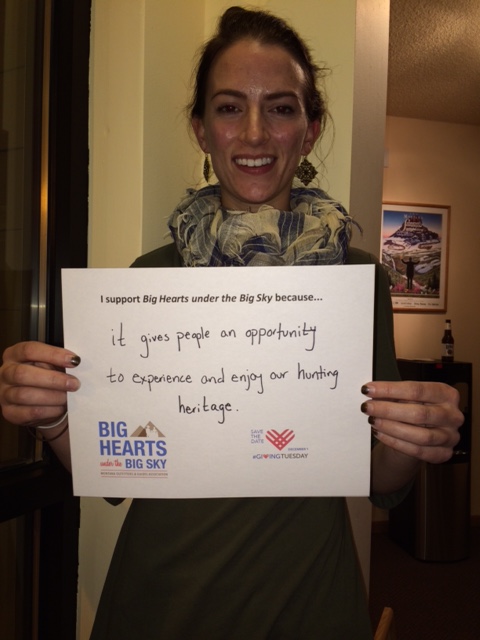 I support Big Hearts under the Big Sky because...
it gives people an opportunity
to experience and enjoy our hunting
heritage.
BIG
HEARTS
under the BIG SKY
SAVE
THE
DATE
#GIVINGTUESDAY